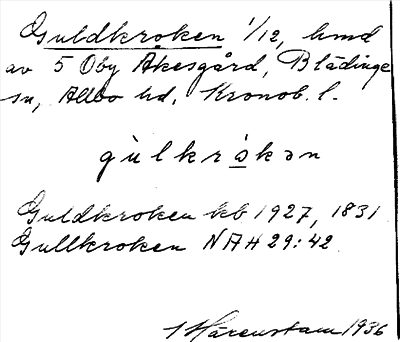 Guldkroken 1/12, hmd
av 5 Oby Åkesgård, Blädinge
sn, Allbo hd, Kronob. l.
gùlkrókən
Guldkroken kb 1927, 1831
Gullkroken NAH 29:42
Härenstam 1936